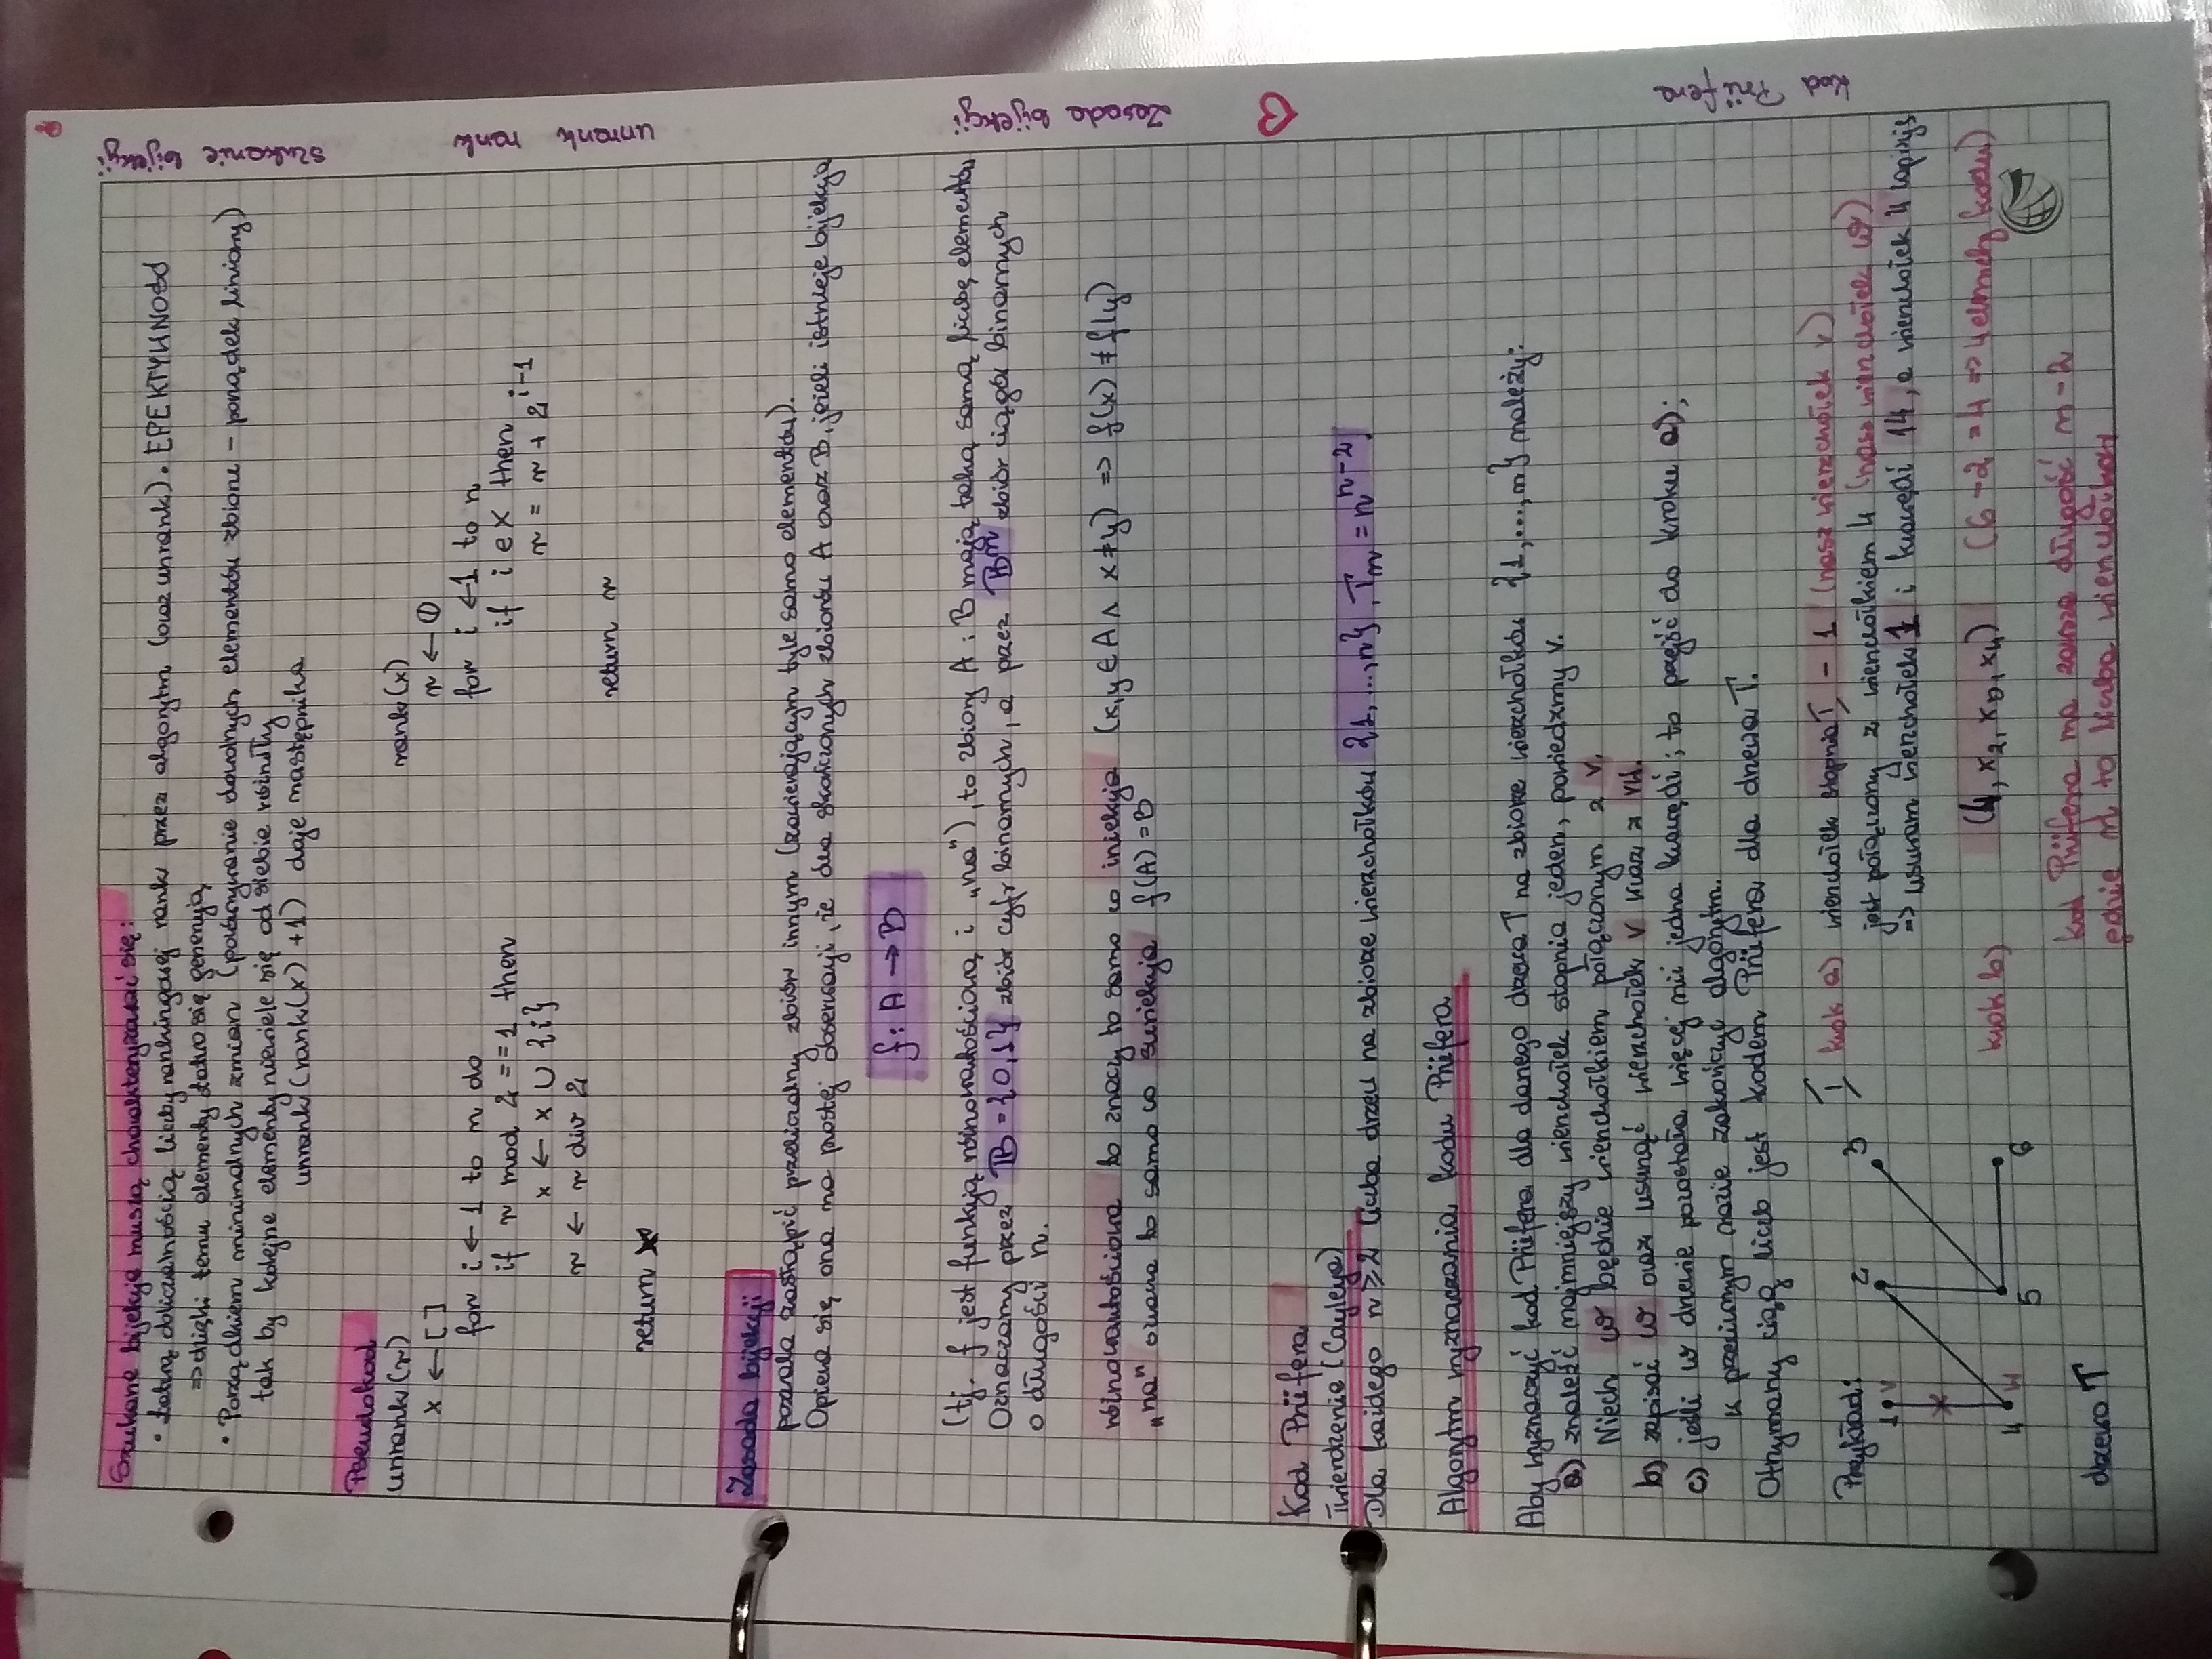 Szukane bijekcje muszą charakteryzować się:
• Łatwą obliczalnością liczby rankingowej rank przez algorytm (oraz unrank). EFEKTYWNOŚĆ
⇒ dzięki temu elementy łatwo się generują
• Porządkiem minimalnych zmian (porównywanie dowolnych elementów zbioru - porządek liniowy)
tak by kolejne elementy niewiele się od siebie różniły
unrank (rank(x) +1) daje następnika
szukanie bijekcji
Pseudokod
unrank(r)
x ← []
for i ← 1 to n do
if r mod 2 == 1 then
x ← x ∪ {i}
r ← r div 2
return x
rank(x)
r ← 0
for i ← 1 to n
if i ∈ X then
r = r + 2^{i-1}
return r
unrank rank
Zasada bijekcji
pozwala zastąpić przeliczalny zbiór innym (zawierającym tyle samo elementów).
Opiera się ona na prostej obserwacji, że dwa skończonych zbiorów A oraz B, jeżeli istnieje bijekcja
f: A → B
(tj. f jest funkcją różnowartościową i „na"), to zbiory A i B mają taką samą liczbę elementów
Oznaczamy przez B = {0,1} zbiór cyfr binarnych, a przez Bⁿ zbiór ciągów binarnych
o długości n.
różnowartościowa to znaczy to samo co iniekcja (x,y ∈ A ∧ x ≠ y) ⇒ f(x) ≠ f(y)
„na" oznacza to samo co suriekcja f(A) = B
Zasada bijekcji
Kod Prüfera
Twierdzenie (Cayleya)
Dla każdego n ≥ 2 liczba drzew na zbiorze wierzchołków {1, ..., n}, Tₙ = n^{n-2}
Algorytm wyznaczania kodu Prüfera
Aby wyznaczyć kod Prüfera dla danego drzewa T na zbiorze wierzchołków {1, ..., n} należy:
a) znaleźć najmniejszy wierzchołek stopnia jeden, powiedzmy v.
Niech w będzie wierzchołkiem połączonym z v.
b) zapisać w oraz usunąć wierzchołek v wraz z vw.
c) jeśli w drzewie pozostała więcej niż jedna krawędź; to przejść do kroku a);
w przeciwnym razie zakończyć algorytm.
Otrzymany ciąg liczb jest kodem Prüfera dla drzewa T.
Kod Prüfera
Przykład:
1 v
2
3
4 w
5
6
drzewo T
I krok a) wierzchołek stopnia I - 1 (nasz wierzchołek v)
jest połączony z wierzchołkiem 4 (nasz wierzchołek w)
⇒ usuwam wierzchołek 1 i krawędź 14, a wierzchołek 4 zapisuję
krok b) (4, x₂, x₃, x₄) (6 - 2 = 4 ⇒ 4 elementy kodu)
Kod Prüfera ma zawsze długość n - 2
gdzie n to liczba wierzchołków